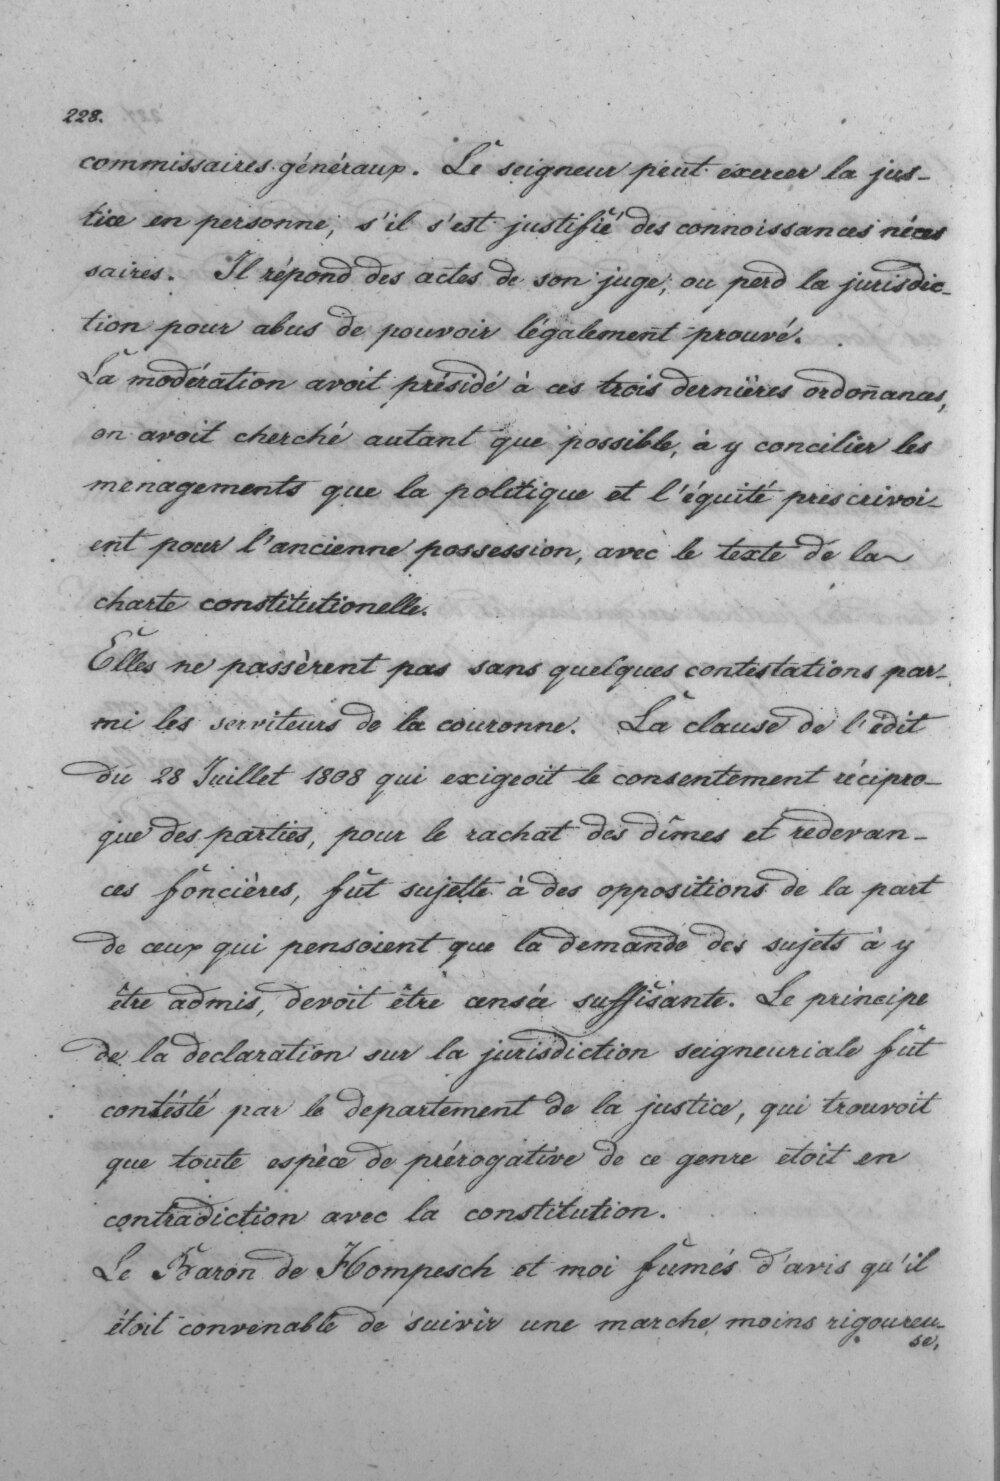 228.
commissaires généraux. Le seigneur peut exercer la jus-
tice en personne, s'il s'est justifié des connoissances néces
saires. Il répond des actes de son juge, ou perd la jurisdic-
tion pour abus de pouvoir légalement prouvé.
La modération avoit présidé à ces trois dernières ordoñances,
on avoit cherché autant que possible, à y concilier les
menagements que la politique et l'équité prescrivoi-
ent pour l'ancienne possession, avec le texte de la
charte constitutionelle.
Elles ne passèrent pas sans quelques contestations par-
mi les serviteurs de la couronne. La clause de l'édit
du 28 Juillet 1808 qui exigeoit le consentement récipro-
que des parties, pour le rachat des dîmes et redevan-
ces foncières, fut sujette à des oppositions de la part
de ceux qui pensoient que la demande des sujets à y
être admis, devoit être censée suffisante. Le principe
de la declaration sur la jurisdiction seigneuriale fut
contésté par le departement de la justice, qui trouvoit
que toute espèce de prérogative de ce genre etoit en
contradiction avec la constitution.
Le Baron de Hompesch et moi fumés d'avis qu'il
étoit convenable de suivir une marche moins rigoureu-
se,